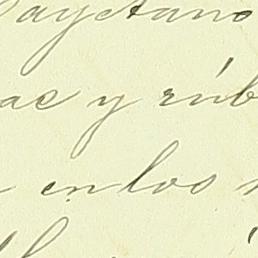 ayetano
ae y rúb
en los